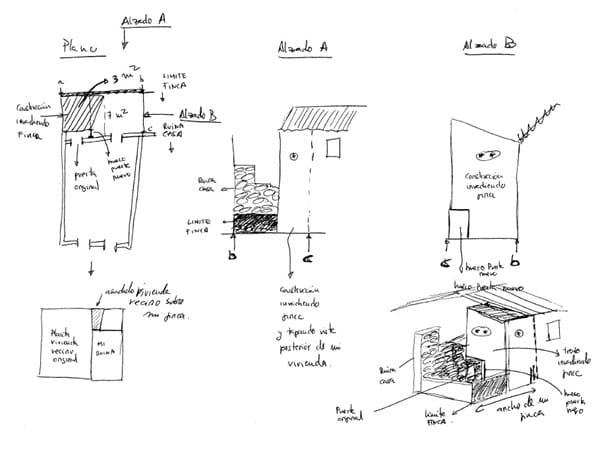 Alzado A
Plano
3 m²
a
b
LIMITE
FINCA
Construcción
invadiendo
FINCA
17 m²
Alzado B
c
RUINA
CASA
puerta
original
hueco
puerta
nuevo
añadido vivienda
vecino sobre
mi finca.
Planta
vivienda
vecino
original
MI
RUINA
Alzado A
Ruina
casa
LIMITE
FINCA
b
c
Construcción
invadiendo
finca
y tapando vista
posterior de mi
vivienda.
Alzado B
Construcción
invadiendo
finca
c
b
hueco Puerta
nuevo
hueco Puerta nuevo
Ruina
casa
trozo
invadiendo
finca
hueco
puerta
nuevo
Puerta
original
Límite
FINCA
c
ancho de mi
finca